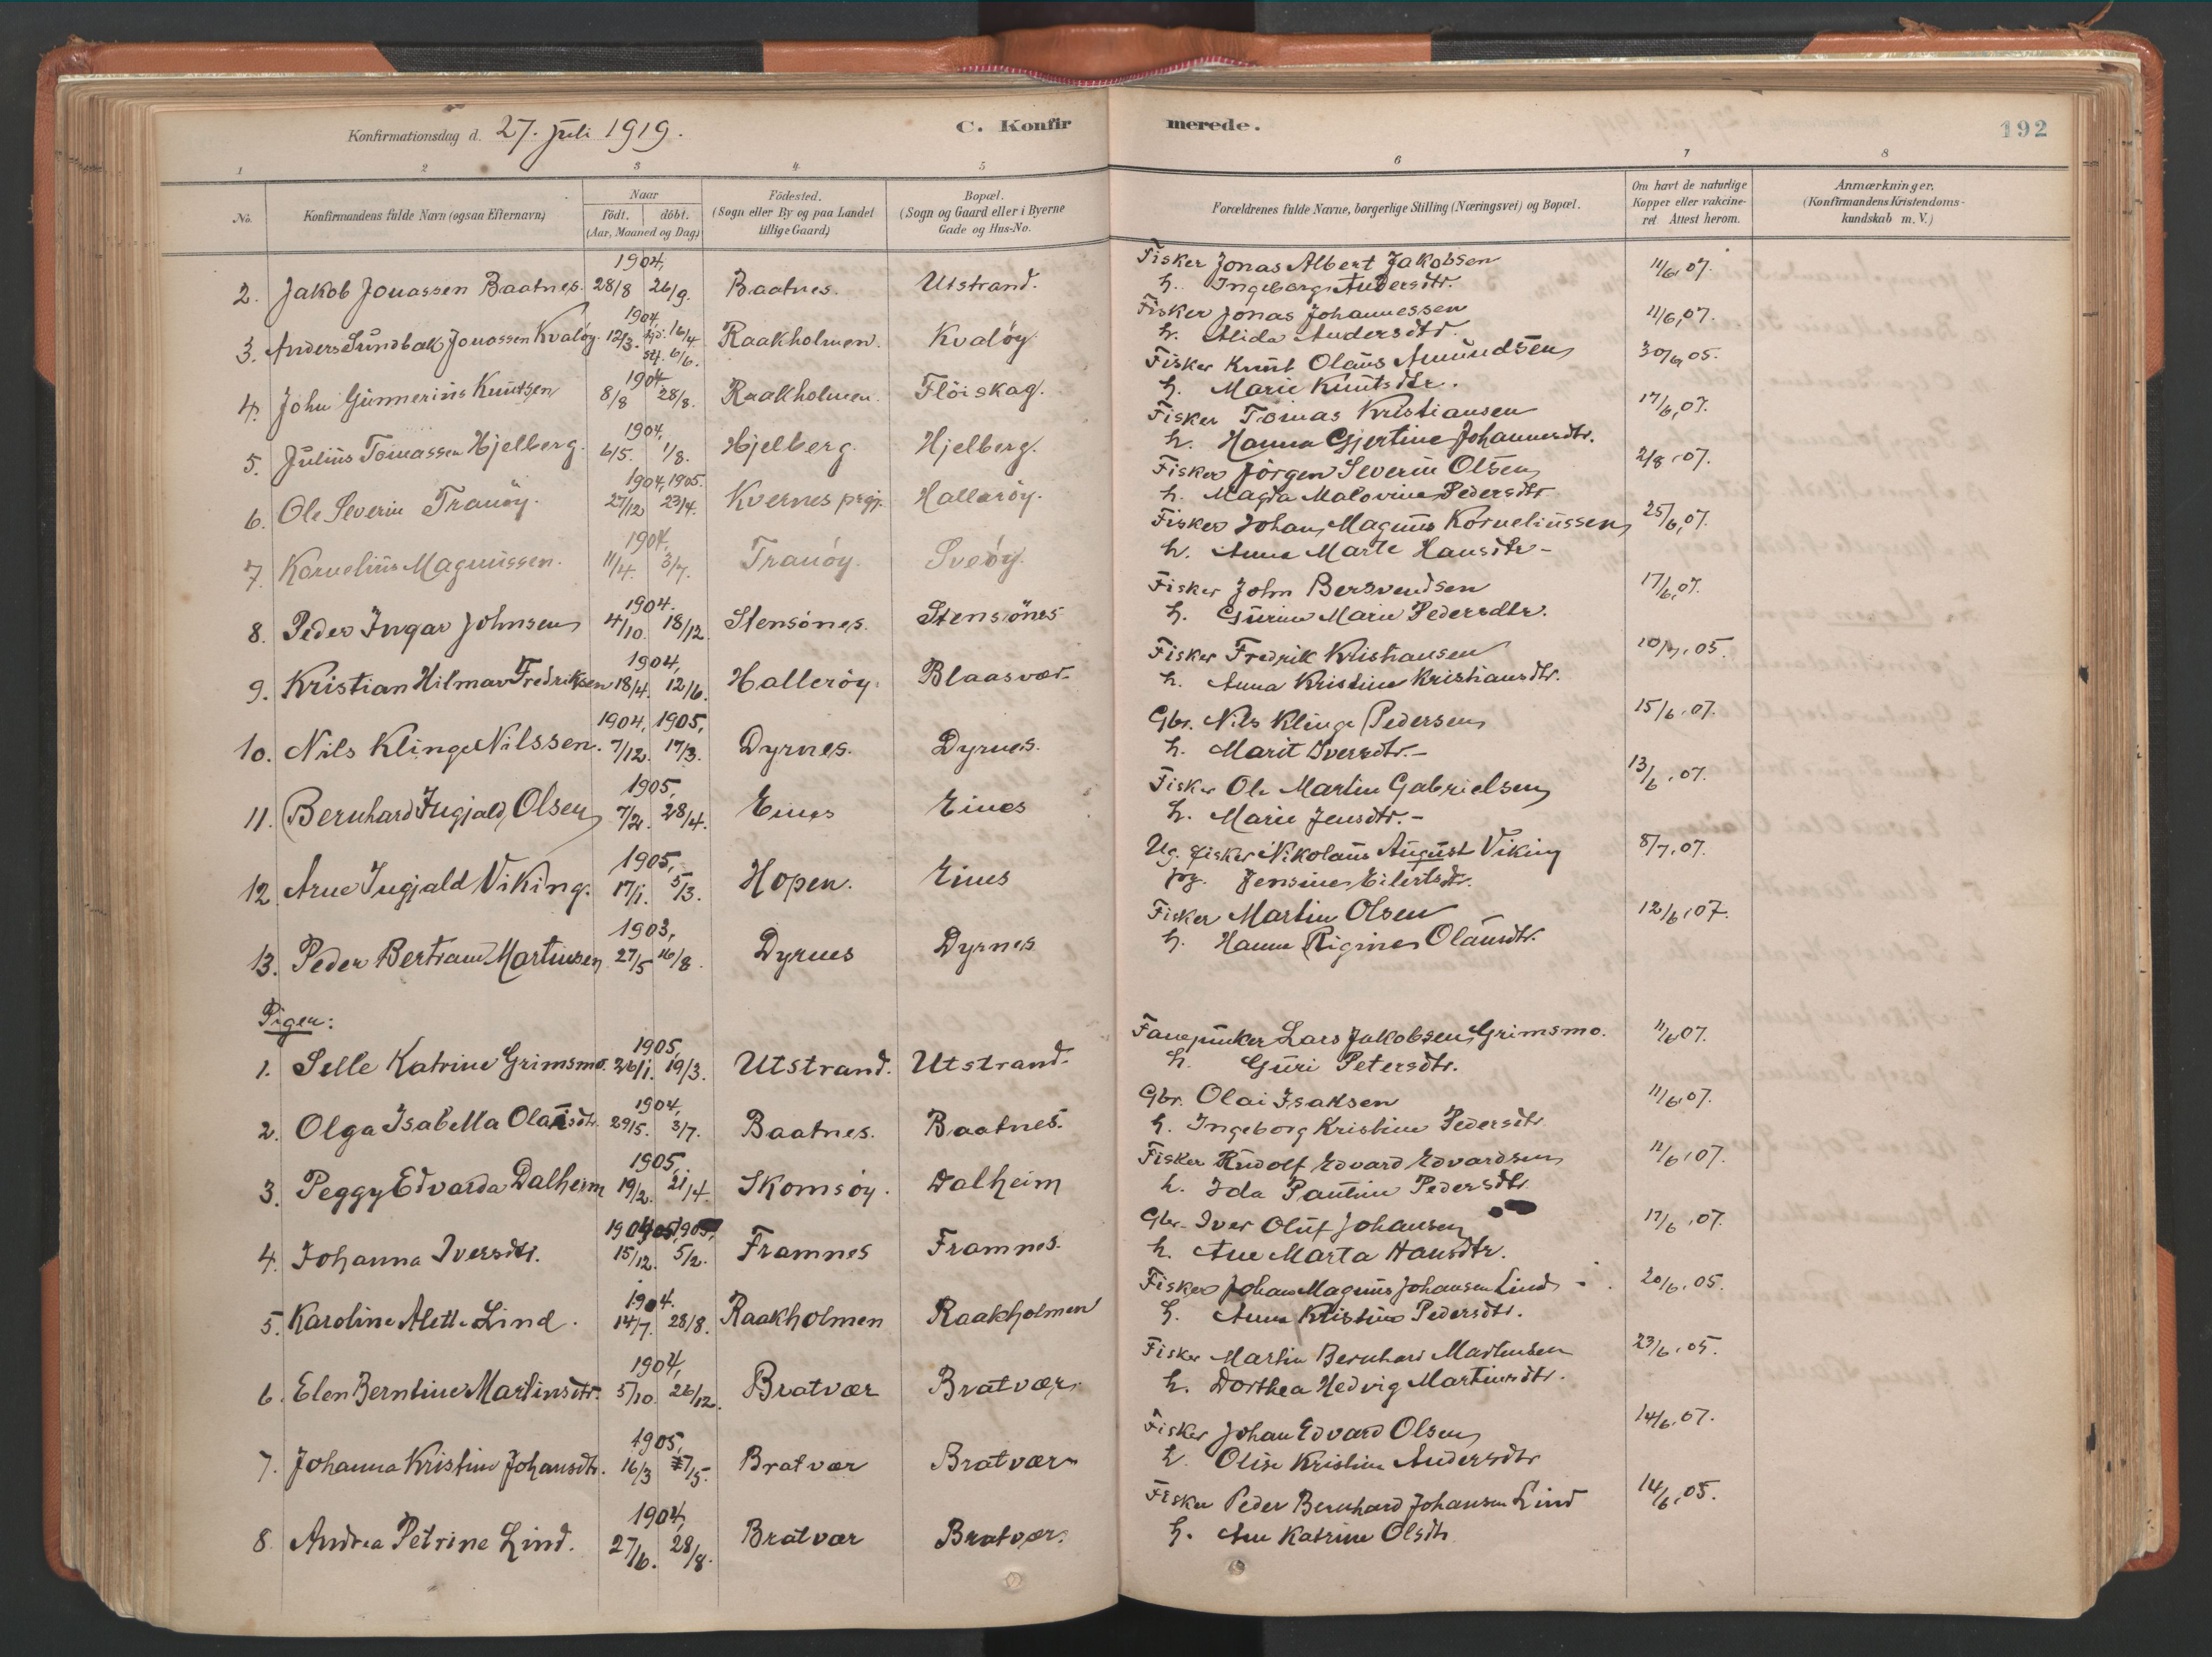 Konfirmationsdag d. 27. juli 1919.
C. Konfirmerede.
192
1 2 3 4 5 6 7 8
No.
Konfirmandens fulde Navn (ogsaa Efternavn)
Naar
födt. döbt.
(Aar, Maaned og Dag)
Födested.
(Sogn eller By og paa Landet
tillige Gaard)
Bopæl.
(Sogn og Gaard eller i Byerne
Gade og Hus-No.
Forældrenes fulde Navne, borgerlige Stilling (Næringsvei) og Bopæl.
Om havt de naturlige
Kopper eller vakcine-
ret Attest herom.
Anmærkninger.
(Konfirmandens Kristendoms-
kundskab m. V.)
1904,
2. Jakob Jonassen Baatnes. 28/8 26/9. Baatnes. Utstrand.
Fisker Jonas Albert Jakobsen 11/6, 07.
h. Ingeborg Andersdtr.
1904
3. Anders Sundbak Jonassen Kvalöy. 12/3. hjd. 16/4. st. 6/6. Raakholmen. Kvalöy
Fisker Jonas Johannessen 11/6, 07.
h. Alida Andersdtr.
1904
4. John Gunnerius Knutsen 8/8 28/8. Raakholmen. Flöiskag.
Fisker Knut Olaus Amundsen 30/6, 05.
h. Marie Knutsdtr.
1904,
5. Julius Tomassen Hjelberg. 6/5. 1/8. Hjelberg. Hjelberg.
Fisker Tomas Kristiansen 17/6, 07.
h. Hanna Gjertine Johannesdtr.
1904, 1905.
6. Ole Severin Tranöy. 27/12 23/4. Kvernes prgj. Halleröy.
Fisker Jörgen Severin Olsen 2/8, 07.
h. Magda Malovine Pedersdtr
1904,
7. Kornelius Magnussen. 11/4. 3/7. Tranöy. Sveöy.
Fisker Johan Magnus Korneliussen 25/6, 07.
h. Anne Marte Hansdtr -
1904.
8. Peder Ingar Johnsen 4/10. 18/12. Stensönes. Stensönes
Fisker John Bersvendsen 17/6, 07.
h. Gurine Marie Pedersdtr.
1904,
9. Kristian Hilmar Fredriksen 18/4. 12/6. Halleröy. Blaasvær
Fisker Fredrik Kristiansen 10/7, 05.
h. Anna Kristine Kristiansdtr.
1904, 1905,
10. Nils Klinge Nilssen. 7/12. 17/3. Dyrnes. Dyrnes.
Gbr. Nils Klinge Pedersen 15/6, 07.
h. Marit Iversdtr. -
1905,
11. Bernhard Ingjald Olsen 7/2. 28/4. Eines Eines
Fisker Ole Martin Gabrielsen 13/6, 07.
h. Marie Jensdtr. -
1905,
12. Arne Ingjald Viking. 17/1. 5/3. Hopen. Eines
Ug. fisker Nikolaus August Viking 8/7, 07.
pg. Jensine Eilertsdtr.
1903,
13. Peder Bertram Martinsen 27/5 16/8. Dyrnes Dyrnes
Fisker Martin Olsen 12/6, 07.
h. Hanna Rigmes Olausdtr.
Piger:
1905,
1. Selle Katrine Grimsmo. 26/1. 19/3. Utstrand. Utstrand.
Fanejunker Lars Jakobsen Grimsmo. 11/6 07.
h. Guri Petersdtr.
1904,
2. Olga Isabella Olaisdtr. 29/5. 3/7. Baatnes. Baatnes.
Gbr. Olai Isaksen 11/6, 07.
h. Ingeborg Kristine Pedersdtr
1905,
3. Peggy Edvarda Dalheim 19/2. 21/4. Skomsöy. Dalheim
Fisker Rudolf Edvard Edvardsen 11/6, 07.
h. Ida Pauline Pedersdtr
1904, 1905,
4. Johanna Iversdtr. 15/12. 5/2. Framnes Framnes.
Gbr. Iver Oluf Johansen 17/6, 07.
h. Ane Marta Hansdtr.
1904.
5. Karoline Alette Lind. 14/7. 28/8. Raakholmen Raakholmen
Fisker Johan Magnus Johansen Lind 20/6, 05.
h. Anna Kristine Pedersdtr.
1904,
6. Elen Berntine Martinsdtr. 5/10. 26/12. Bratvær Bratvær.
Fisker Martin Bernhard Martinsen 23/6, 05.
h. Dorthea Hedvig Martinsdtr.
1905,
7. Johanna Kristine Johansdtr. 16/3 7/5. Bratvær Bratvær
Fisker Johan Edvard Olsen 14/6, 07.
h. Olise Kristine Andersdtr
1904,
8. Andrea Petrine Lind. 27/6. 28/8. Bratvær Bratvær.
Fisker Peder Bernhard Johansen Lind 14/6, 05.
h. Ane Katrine Olsdtr